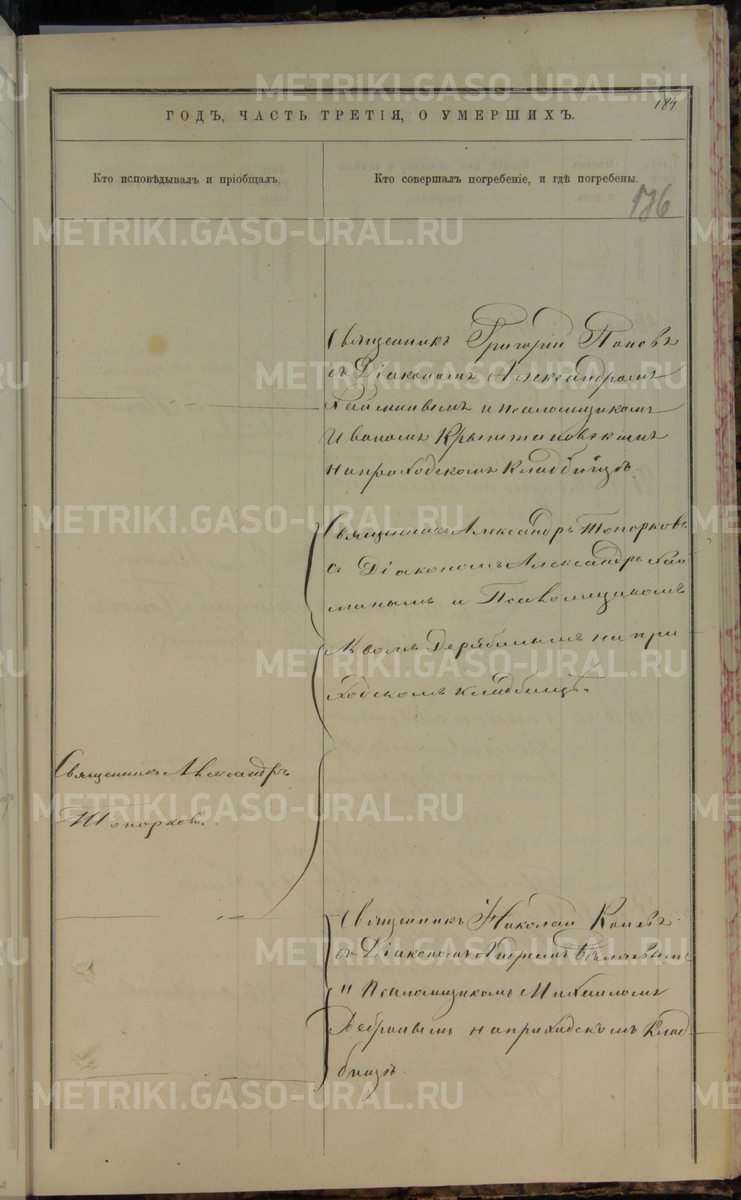 184
ГОДЪ, ЧАСТЬ ТРЕТІЯ, О УМЕРШИХЪ.
Кто исповѣдывалъ и пріобщалъ.
Кто совершалъ погребеніе, и гдѣ погребены.
176
Священникъ Григорій Поповъ
съ Діакономъ Александромъ
и псаломщикомъ
Иваномъ
на приходскомъ кладбищѣ.
Священникъ Александръ Топорковъ
съ Діакономъ Александръ Хай
минымъ и Псаломщикомъ
Львомъ Дерябинымъ на при
ходскомъ кладбищѣ.
Священникъ Александръ
Топорковъ.
Священникъ Николай
съ Діакономъ
и Псаломщикомъ Михаиломъ
на приходскомъ Клад
бищѣ.
METRIKI.GASO-URAL.RU